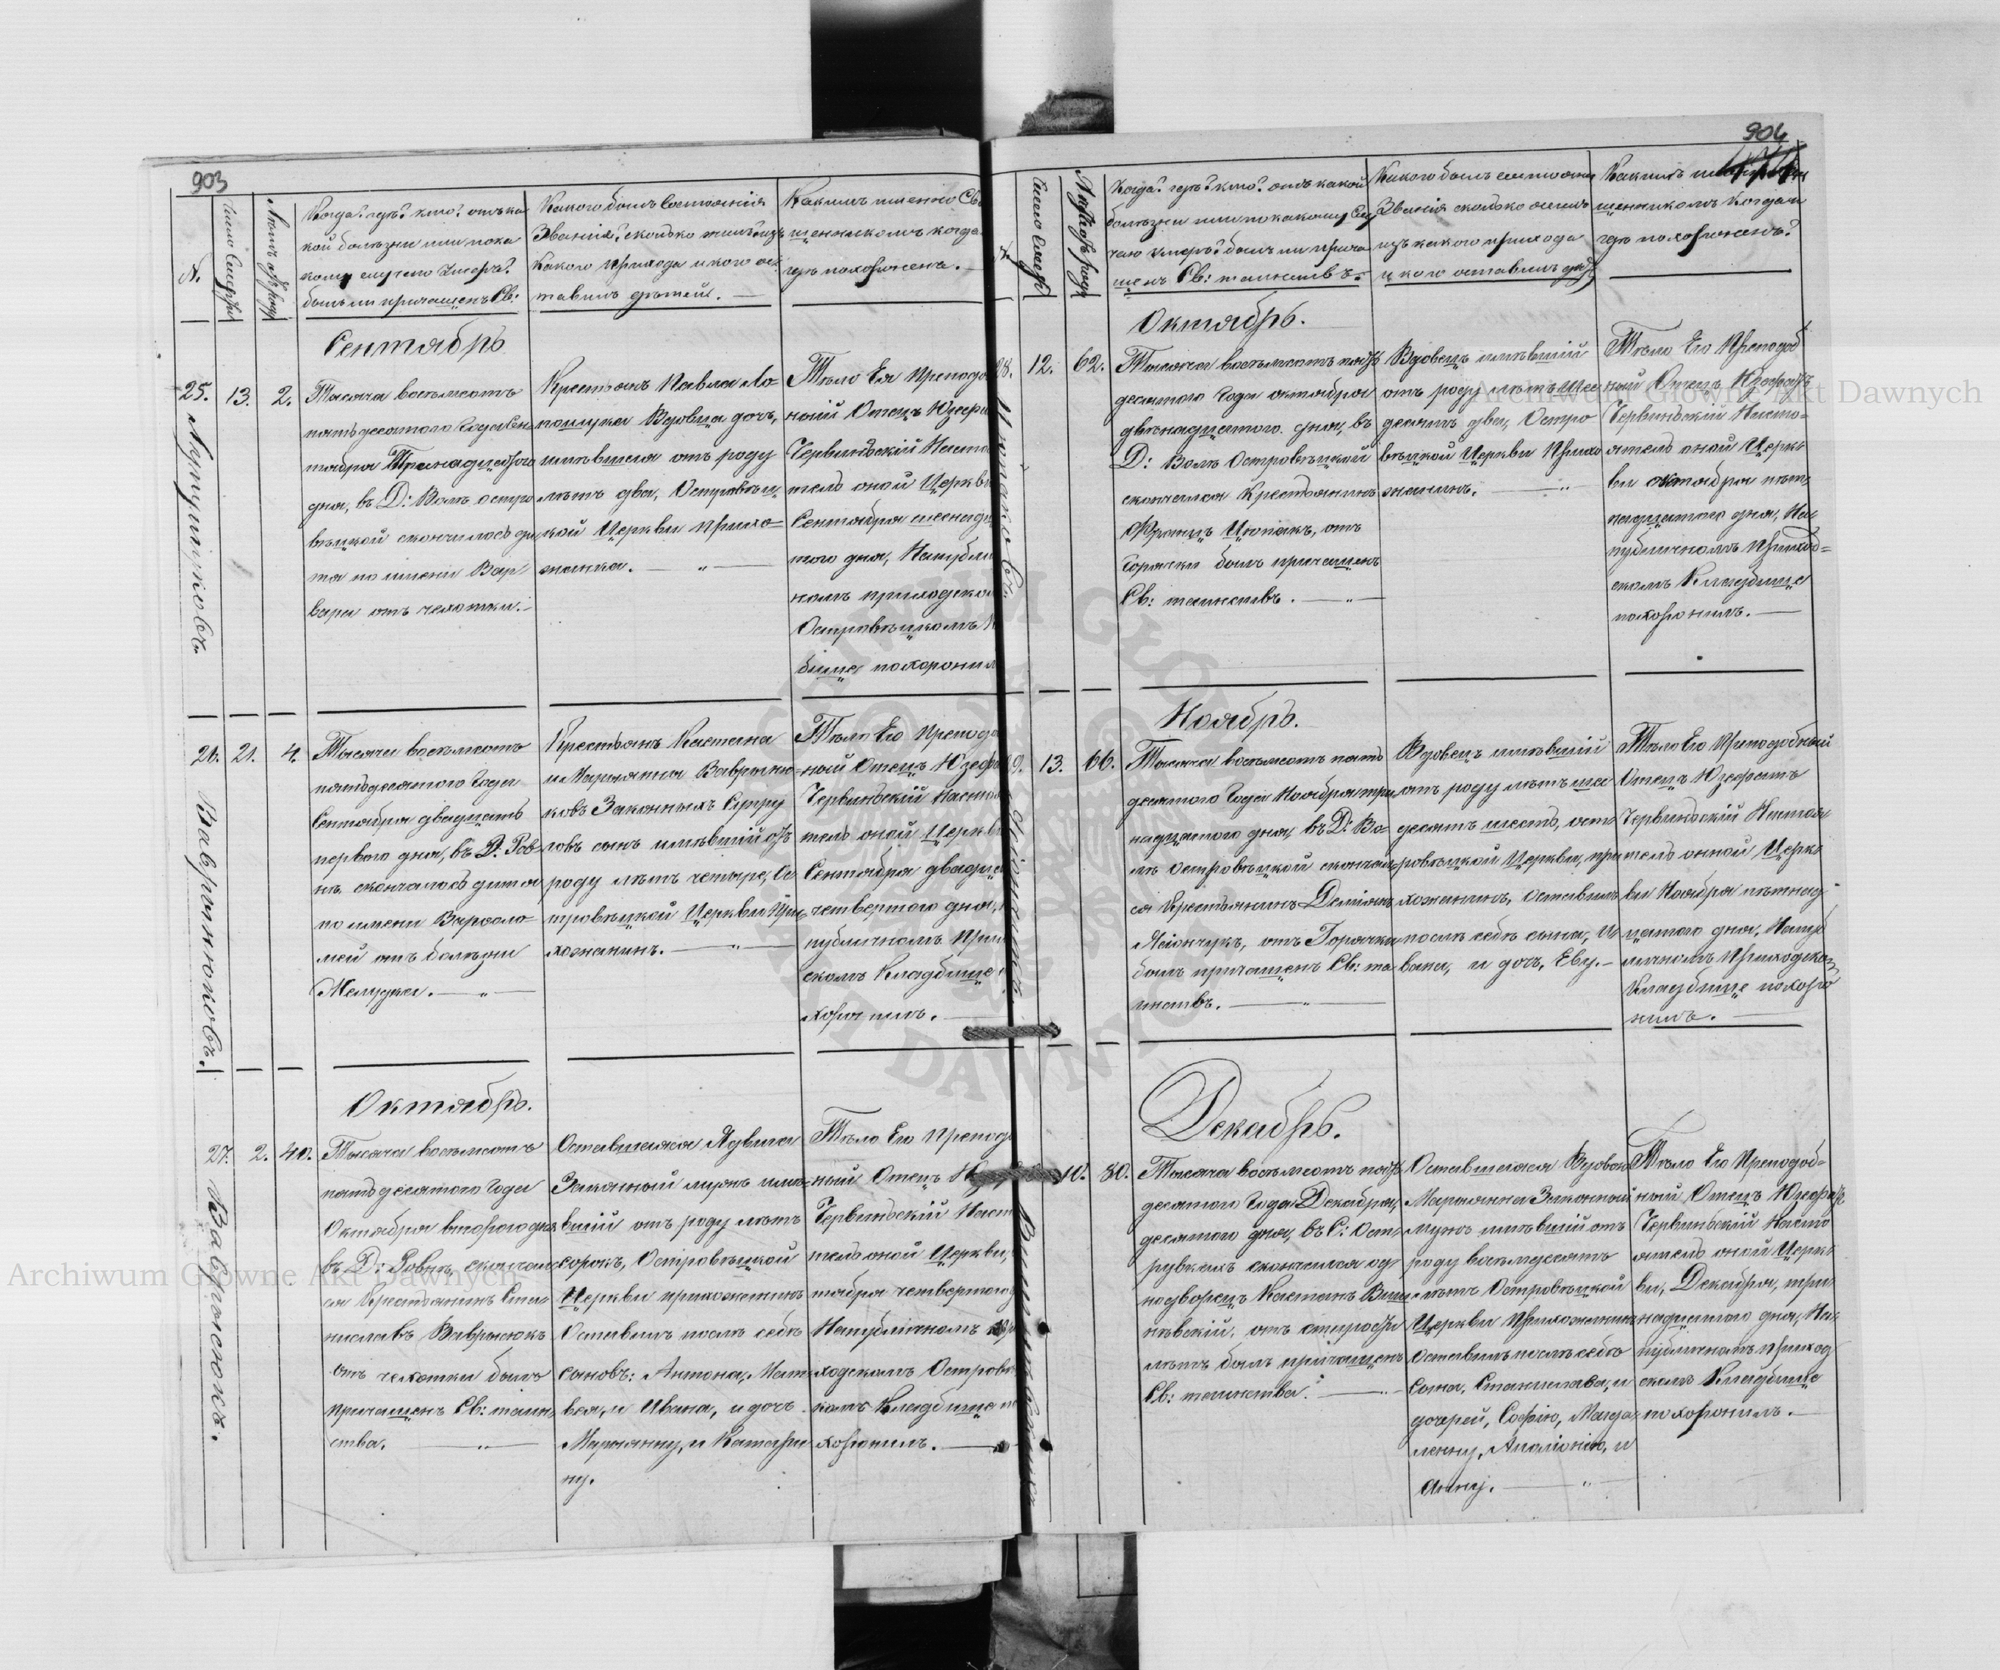 903
№.
Число Смерти
Лѣтъ отъ роду
Когда? гдѣ? кто? отъ ка
кой болѣзни или по ка
кому случаю умеръ?
былъ ли причащенъ Св:
Какого былъ Состоянія
Званія? сколько жилъ, изъ
какого прихода и кого ос
тавилъ дѣтей.
Какимъ именно Св
щенникомъ когда
гдѣ похороненъ.
Сентябрь
25.
13.
2.
Тысяча восемьсотъ
пятьдесятого Года Сен
тября Тринадцатого
дня, въ Д: Волѣ остро
вѣцкой скончалось ди
тя по имени Вар
вара отъ чехотки.
Крестьянъ Павла Ло
пошука Вдовца дочь,
имѣвшая отъ роду
лѣтъ два, Островѣц
кой Церкви прихо
жанка.
Тѣло Ея Преподо
ный Отецъ Юзефа
Червинскій Насто
тель оной Церкви
Сентября шеснадц
того дня, На публи
номъ приходско
Островѣцкомъ
бище похорони
26.
21.
4.
Вавринюковъ.
Тысяча восемьсотъ
пятьдесятого Года
Сентября двадцать
первого дня, въ Д: Ров
нѣ скончалось дитя
по имени Варфоло
мей отъ болѣзни
Желудка.
Крестьянъ Кастана
и Маріянны Вавриню
ковъ Законныхъ Супру
говъ сынъ имѣвшій отъ
роду лѣтъ четыре, Ос
тровѣцкой Церкви При
хожанинъ.
Тѣло Его Преподо
ный Отецъ Юзефа
Червинскій Насто
тель оной Церкви
Сентября двадца
четвертого дня,
публичномъ При
скомъ Кладбище
хоронилъ.
Октябрь.
27.
2.
40.
Вавринюкъ.
Тысяча восемьсотъ
пятьдесятого Года
Октября второго дня
въ Д: Ровнѣ, скончал
ся Крестьянинъ Ста
ниславъ Вавринюкъ
отъ чехотки былъ
причащенъ Св: таин
ства.
Оставшаяся Ядвига
Законный мужъ имѣ
вшій отъ роду лѣтъ
сорокъ, Островѣцкой
Церкви прихожанинъ
Оставилъ послѣ себѣ
сыновъ: Антона, Мат
вея, и Ивана, и дочь
Маріянну, и Катари
ну.
Тѣло Его Препод
ный Отецъ Ю
Червинскій Наст
тель оной Церкви,
тября четвертого
На публичномъ
ходскомъ Островѣ
комъ Кладбище п
хоронилъ.
904
Число Смерти
Лѣтъ отъ роду
Когда? гдѣ? кто? отъ какой
болѣзни или по какому Слу
чаю умеръ? былъ ли прича
щенъ Св: таинствъ.
Какого былъ состоянія
Званія сколько жилъ
изъ какого прихода
и кого оставилъ дѣт
Какимъ
щенникомъ когда и
гдѣ похороненъ?
Октябрь.
28.
12.
62.
Тысяча восемьсотъ пять
десятого Года октября
двѣнадцатого дня, въ
Д: Волѣ Островѣцкой
скончался Крестьянинъ
Францъ Цюпакъ, отъ
Горячки былъ причащенъ
Св: таинствъ.
Вдовецъ имѣвшій
отъ роду лѣтъ шес
десятъ два, Остро
вѣцкой Церкви Прихо
жанинъ.
Тѣло Его Преподоб
ный Отецъ Юзефатъ
Червинскій Насто
ятель оной Церк
ви октября пят
надцатого дня, На
публичномъ Приход
скомъ Кладбище
похоронилъ.
Ноябрь.
9.
13.
66.
Тысяча восемьсотъ пять
десятого Года Ноября три
надцатого дня, въ Д: Во
лѣ островѣцкой скончал
ся Крестьянинъ Деміанъ
Ясіончукъ, отъ Горячки
былъ причащенъ Св: та
инствъ.
Вдовецъ имѣвшій
отъ роду лѣтъ шес
десятъ шесть, ост
ровѣцкой Церкви, при
хожанинъ, оставилъ
послѣ себѣ сына, И
вана, и дочь, Еву.
Тѣло Его Преподобный
Отецъ Юзефатъ
Червинскій Настоя
тель онной Церк
ви Ноября пятнад
цатого дня, На пуб
личномъ Приходском
Кладбище похоро
нилъ.
Декабрь.
10.
80.
Тысяча восемьсотъ пять
десятого Года Декабря,
десятого дня, въ С: Ост
рувкахъ скончался од
нодворецъ Кастанъ Виш
нѣвскій, отъ старости
лѣтъ былъ причащенъ
Св: таинства.
Оставшаяся Вдовою
Маріянна Законный
мужъ имѣвшій отъ
роду восемдесятъ
лѣтъ Островѣцкой
Церкви Прихожанинъ
Оставилъ послѣ себѣ
Сына, Станислава, и
дочерей, Софію, Магда
ленну, Аполіонію, и
Анну.
Тѣло Его Преподоб
ный Отецъ Юзефатъ
Червинскій Насто
ятель оной Церк
ви, Декабря, три
надцатого дня, На
публичномъ приход
скомъ Кладбище
похоронилъ.
Archiwum Główne Akt Dawnych
Archiwum Główne Akt Dawnych